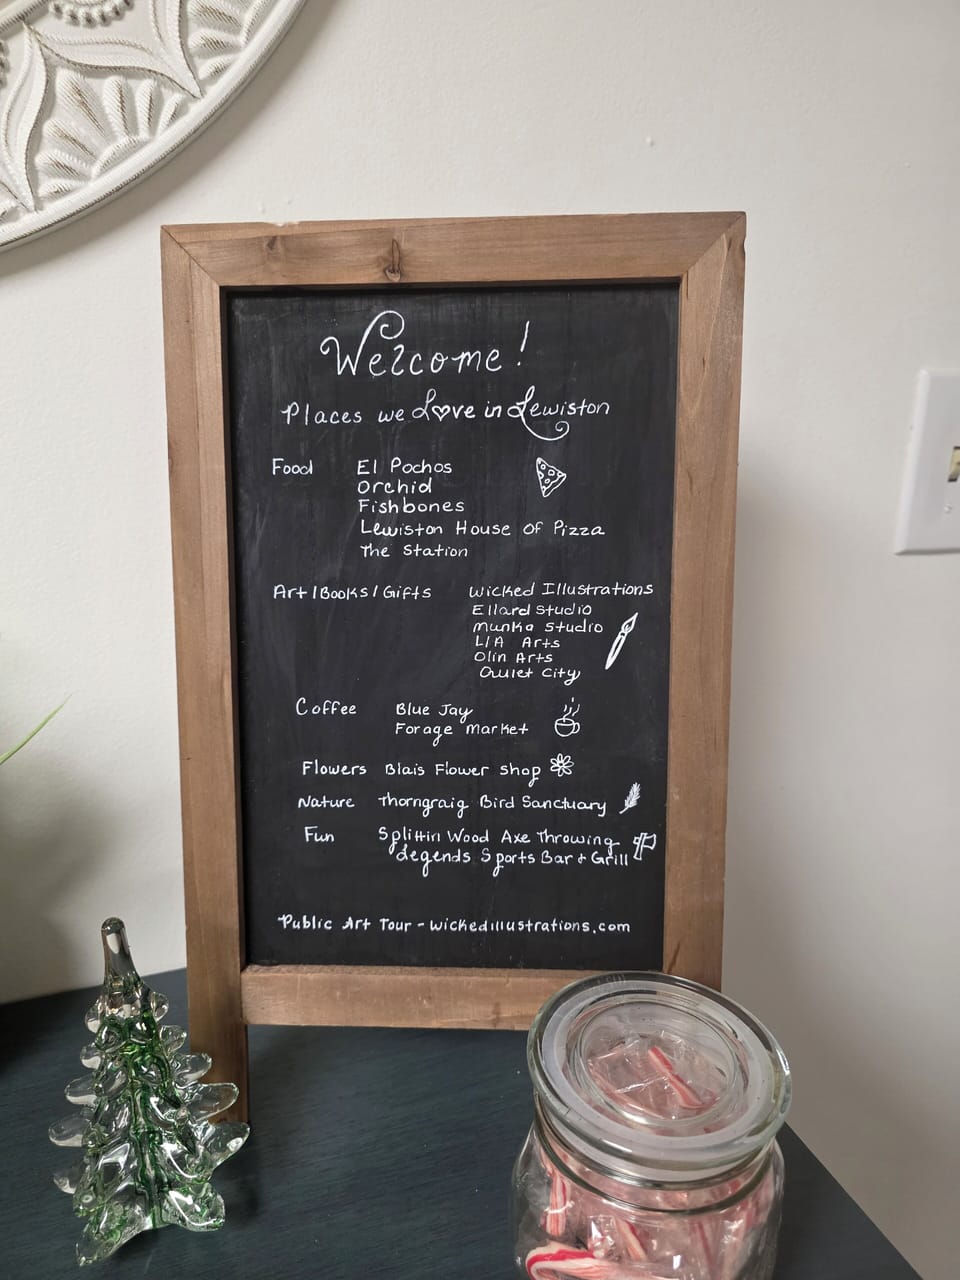 Welcome!
Places we Love in Lewiston
Food El Pochos
Orchid
Fishbones
Lewiston House of Pizza
The Station
Art/Books/Gifts Wicked Illustrations
Ellard Studio
Munka Studio
L/A Arts
Olin Arts
Quiet City
Coffee Blue Jay
Forage Market
Flowers Blais Flower Shop
Nature Thorngraig Bird Sanctuary
Fun Splittin Wood Axe Throwing
Legends Sports Bar + Grill
Public Art Tour - wickedillustrations.com